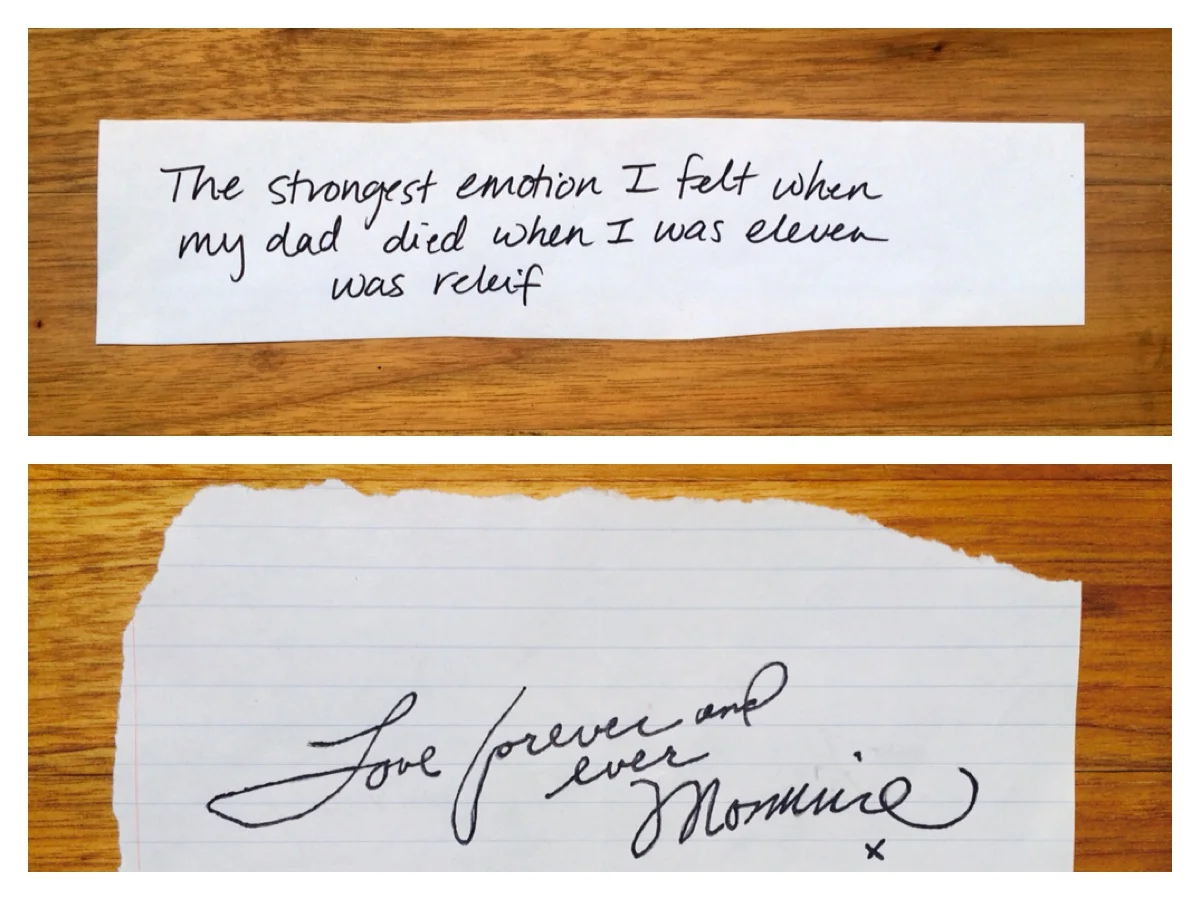 The strongest emotion I felt when
my dad died when I was eleven
was releif
Love forever and
ever
Mommie
x